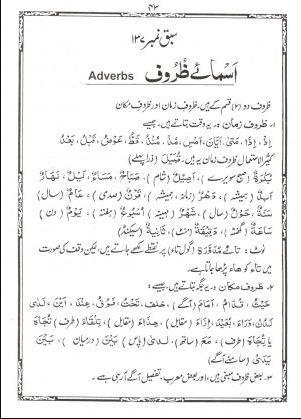 ۴۳
سبق نمبر ۱۳۷
اَسْمائے ظُروف Adverbs
ظروف دو (۲) قسم کے ہیں۔ ظروفِ زمان اور ظروفِ مکان
۱۔ ظروف زمان ؎۔ یہ وقت بتاتے ہیں۔ جیسے
اِذْ، اِذَا، مَتٰی، اَیَّانَ، اَمْسِ، مُذْ، مُنْذُ، قَطُّ، عَوْضُ، قَبْلُ، بَعْدُ
کثیر الاستعمال ظروف زمان یہ ہیں۔ قُبَیْلَ (ذرا پہلے)
بُکْرَةً (صبح سویرے)، اَصِیْلً (شام)، صَبَاحًا، مَسَاءً، لَیْلً، نَهَارً
اَبَدً (ہمیشہ)، دَهْرً (زمانہ، ہمیشہ)، قَرْنً (صدی)، عَامً (سال)
سَنَةً، حَوْلً (سال)، شَهْرً (مہینہ)، اُسْبُوْعً (ہفتہ)، یَوْمً (دن)
سَاعَةً (گھنٹہ)، دَقِیْقَةً (منٹ)، ثَانِیَةً (سیکنڈ)
نوٹ : تائے مُدَوَّرَہ (گول تاء) پر نقطے لکھے جاتے ہیں، لیکن وقف کی صورت
میں تاء کو ھاء پڑھا جاتا ہے۔
۲۔ ظروف مکان ؎۔ یہ جگہ بتاتے ہیں۔ جیسے :
حَیْثُ، قُدَّامَ، اَمَامَ (آگے)، خَلْفَ، تَحْتَ، فَوْقَ، عِنْدَ، اَیْنَ، لَدٰی
لَدُنْ، وَرَاءَ، بَعِیْدَ، اِزَاءَ (مقابل)، حِذَاءَ (مقابل)، تِلْقَاءَ (طرف)، تُجَاهَ
یا تِجَاهَ (طرف)، مَعَ (ساتھ)، لَدَیْ (پاس)، بَیْنَ (درمیان)، بَیْنَ
یَدَیْ (سامنے آگے)
۳۔ بعض ظروف مبنی ہیں، اور بعض معرب۔ تفصیل آگے آ رہی ہے۔